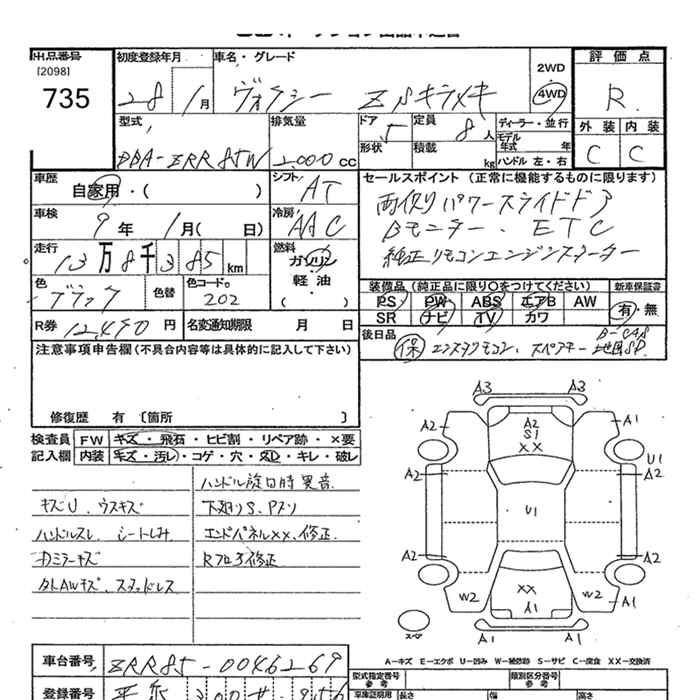 出品番号 初度登録年月 車名・グレード 2WD 評価点
[2098]
735 28 1月 ヴォクシー ZSキラメキ 4WD R
型式 排気量 ドア 定員 ディーラー・並行 外装 内装
DBA-ZRR85W 2,000cc 5 8人 モデル年式 年 C C
形状 積載 kg ハンドル 左・右
車歴 シフト セールスポイント (正常に機能するものに限ります)
自家用・( ) AT 両側パワースライドドア
車検 冷房 Bモニター. ETC
9年 1月( 日) AAC 純正リモコンエンジンスターター
走行 燃料
13万8千385km ガソリン
軽油
( )
色 色替 色コード 装備品(純正品に限り○をつけてください) 新車保証書
ブラック 202 PS PW ABS エアB AW 有・無
SR ナビ TV カワ
R券 12,490円 名変通知期限 月 日 後日品
保 エンスタリモコン、スペアキー B-CAS 地図SD
注意事項申告欄(不具合内容等は具体的に記入して下さい)
修復歴 有 〔箇所 〕
検査員 FW キズ・飛石・ヒビ割・リペア跡・×要
記入欄 内装 キズ・汚レ・コゲ・穴・スレ・キレ・破レ
ハンドル旋回時異音
キズU、ウスキズ 下廻りS、Pスリ
ハンドルスレ、シートしみ エンドパネルXX、修正
カミラーキズ Rフロア修正
カトAWキズ、スタッドレス
A3 A3
A2 A2 S1 XX A1
U1
A2 A2
U1
A2 A2
W2 XX W2
A1 A1
A1 A1
スペア
A-キズ E-エクボ U-凹み W-補修跡 S-サビ C-腐食 XX-交換済
車台番号 ZRR85-0046269
型式指定番号 参考 類別区分番号 参考
登録番号
車庫証明用 長さ 幅 高さ